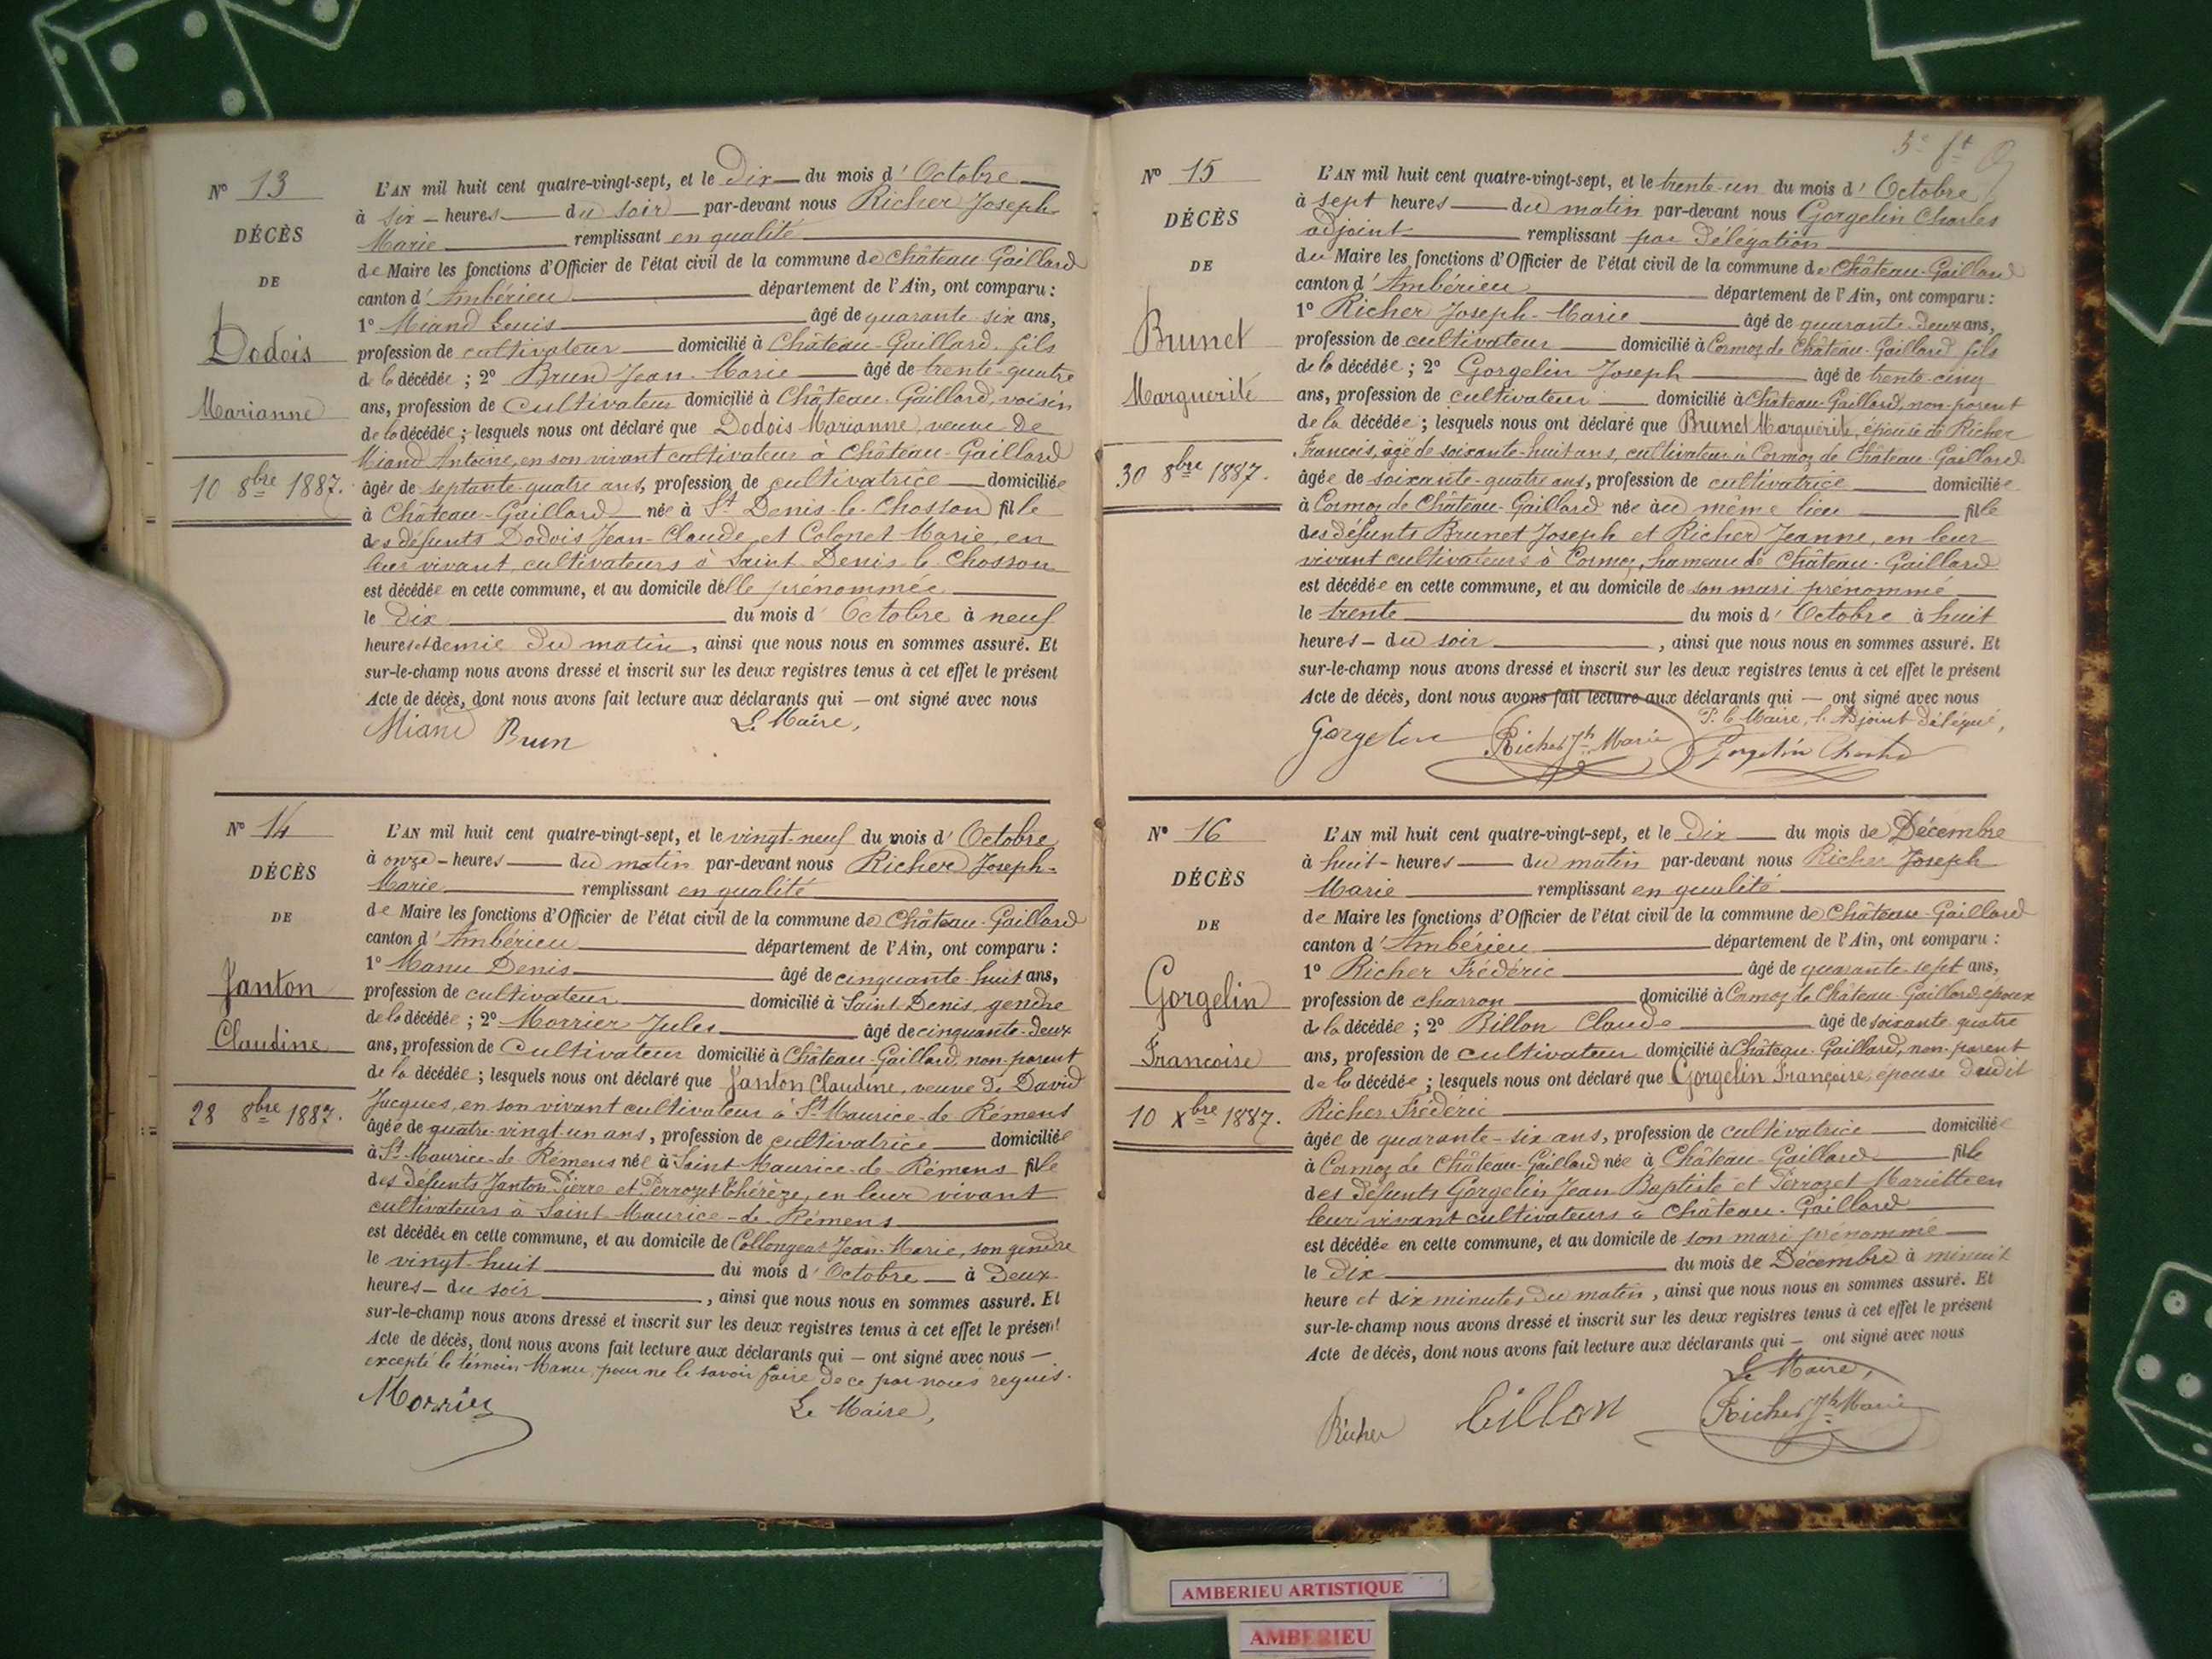 N° 13
DÉCÈS
DE
Dodois
Marianne
10 8bre 1887.
L'AN mil huit cent quatre-vingt-sept, et le Dix du mois d'Octobre
à six heures du soir par-devant nous Richer Joseph
Marie remplissant en qualité
de Maire les fonctions d'Officier de l'état civil de la commune de Château-Gaillard
canton d'Ambérieu département de l'Ain, ont comparu :
1° Miand Louis âgé de quarante-six ans,
profession de cultivateur domicilié à Château-Gaillard, fils
de la décédée ; 2° Brun Jean-Marie âgé de trente-quatre
ans, profession de cultivateur domicilié à Château-Gaillard, voisin
de la décédée ; lesquels nous ont déclaré que Dodois Marianne, veuve de
Miand Antoine, en son vivant cultivateur à Château-Gaillard
âgée de septante-quatre ans, profession de cultivatrice domiciliée
à Château-Gaillard née à St Denis-le-Chosson fille
des défunts Dodois Jean-Claude et Colonel Marie, en
leur vivant, cultivateurs à Saint-Denis-le-Chosson
est décédée en cette commune, et au domicile d'elle prénommée
le Dix du mois d'Octobre à neuf
heures et demie du matin, ainsi que nous nous en sommes assuré. Et
sur-le-champ nous avons dressé et inscrit sur les deux registres tenus à cet effet le présent
Acte de décès, dont nous avons fait lecture aux déclarants qui — ont signé avec nous
Le Maire,
Miand Brun
N° 14
DÉCÈS
DE
Janton
Claudine
28 8bre 1887.
L'AN mil huit cent quatre-vingt-sept, et le vingt-neuf du mois d'Octobre
à onze heures du matin par-devant nous Richer Joseph-
Marie remplissant en qualité
de Maire les fonctions d'Officier de l'état civil de la commune de Château-Gaillard
canton d'Ambérieu département de l'Ain, ont comparu :
1° Manu Denis âgé de cinquante-huit ans,
profession de cultivateur domicilié à Saint-Denis, gendre
de la décédée ; 2° Morrier Jules âgé de cinquante-deux
ans, profession de cultivateur domicilié à Château-Gaillard, non-parent
de la décédée ; lesquels nous ont déclaré que Janton Claudine, veuve de David
Jacques, en son vivant cultivateur à St Maurice-de-Rémens
âgée de quatre-vingt-un ans, profession de cultivatrice domiciliée
à St Maurice-de-Rémens née à Saint-Maurice-de-Rémens fille
des défunts Janton Pierre et Perrozet Thérèze, en leur vivant
cultivateurs à Saint-Maurice-de-Rémens
est décédée en cette commune, et au domicile de Collongeat Jean-Marie, son gendre
le vingt-huit du mois d'Octobre à deux
heures du soir, ainsi que nous nous en sommes assuré. Et
sur-le-champ nous avons dressé et inscrit sur les deux registres tenus à cet effet le présent
Acte de décès, dont nous avons fait lecture aux déclarants qui — ont signé avec nous —
excepté le témoin Manu, pour ne le savoir faire de ce par nous requis.
Morrier Le Maire,
N° 15
DÉCÈS
DE
Brunet
Marguerite
30 8bre 1887.
L'AN mil huit cent quatre-vingt-sept, et le trente-un du mois d'Octobre
à sept heures du matin par-devant nous Gorgelin Charles
adjoint remplissant par délégation
du Maire les fonctions d'Officier de l'état civil de la commune de Château-Gaillard
canton d'Ambérieu département de l'Ain, ont comparu :
1° Richer Joseph-Marie âgé de quarante-deux ans,
profession de cultivateur domicilié à Cormoz de Château-Gaillard fils
de la décédée ; 2° Gorgelin Joseph âgé de trente-cinq
ans, profession de cultivateur domicilié à Château-Gaillard, non-parent
de la décédée ; lesquels nous ont déclaré que Brunet Marguerite, épouse de Richer
François, âgé de soixante-huit ans, cultivateur à Cormoz de Château-Gaillard
âgée de soixante-quatre ans, profession de cultivatrice domiciliée
à Cormoz de Château-Gaillard née au même lieu fille
des défunts Brunet Joseph et Richer Jeanne, en leur
vivant cultivateurs à Cormoz, hameau de Château-Gaillard
est décédée en cette commune, et au domicile de son mari prénommé
le trente du mois d'Octobre à huit
heures du soir, ainsi que nous nous en sommes assuré. Et
sur-le-champ nous avons dressé et inscrit sur les deux registres tenus à cet effet le présent
Acte de décès, dont nous avons fait lecture aux déclarants qui — ont signé avec nous
P. le Maire, l'Adjoint délégué,
Gorgelin Richer Jh Marie Gorgelin Charles
N° 16
DÉCÈS
DE
Gorgelin
Françoise
10 Xbre 1887.
L'AN mil huit cent quatre-vingt-sept, et le Dix du mois de Décembre
à huit heures du matin par-devant nous Richer Joseph
Marie remplissant en qualité
de Maire les fonctions d'Officier de l'état civil de la commune de Château-Gaillard
canton d'Ambérieu département de l'Ain, ont comparu :
1° Richer Frédéric âgé de quarante-sept ans,
profession de charron domicilié à Cormoz de Château-Gaillard, époux
de la décédée ; 2° Billon Claude âgé de soixante-quatre
ans, profession de cultivateur domicilié à Château-Gaillard, non-parent
de la décédée ; lesquels nous ont déclaré que Gorgelin Françoise, épouse dudit
Richer Frédéric
âgée de quarante-six ans, profession de cultivatrice domiciliée
à Cormoz de Château-Gaillard née à Château-Gaillard fille
des défunts Gorgelin Jean Baptiste et Perrozet Mariette en
leur vivant cultivateurs à Château-Gaillard
est décédée en cette commune, et au domicile de son mari prénommé
le Dix du mois de Décembre à minuit
heure et dix minutes du matin, ainsi que nous nous en sommes assuré. Et
sur-le-champ nous avons dressé et inscrit sur les deux registres tenus à cet effet le présent
Acte de décès, dont nous avons fait lecture aux déclarants qui — ont signé avec nous
Le Maire,
Richer Billon Richer Jh Marie
AMBERIEU ARTISTIQUE
AMBERIEU